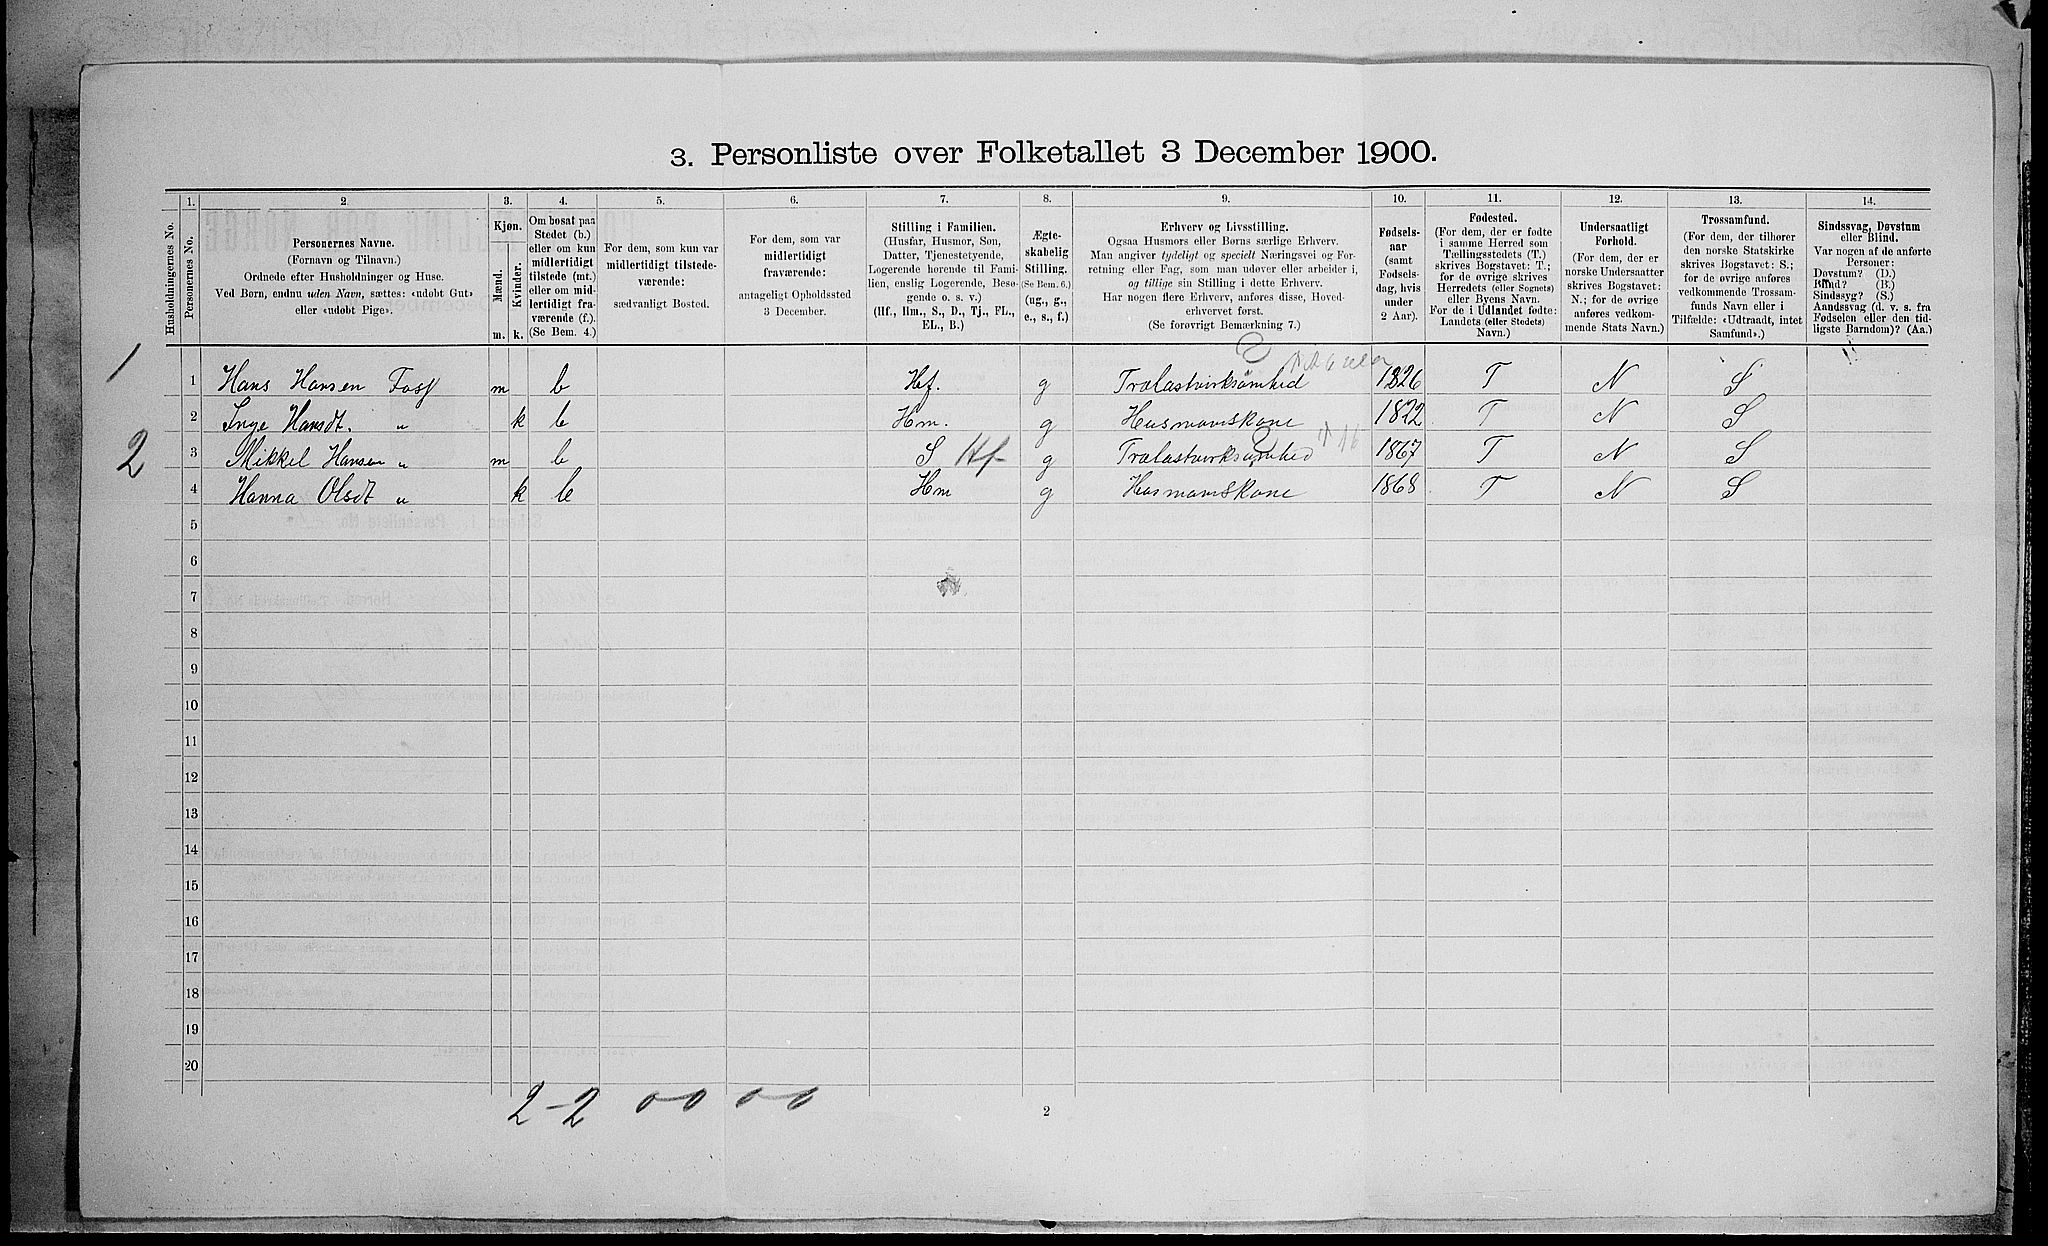 3. Personliste over Folketallet 3 December 1900.
Husholdningernes No.
1.
Personernes No.
2.
Personernes Navne.
(Fornavn og Tilnavn.)
Ordnede efter Husholdninger og Huse.
Ved Børn, endnu uden Navn, sættes: «udøbt Gut»
eller «udøbt Pige».
3.
Kjøn.
Mænd.
Kvinder.
m. k.
4.
Om bosat paa
Stedet (b.)
eller om kun
midlertidigt
tilstede (mt.)
eller om mid-
lertidigt fra-
værende (f.).
(Se Bem. 4.)
5.
For dem, som kun var
midlertidigt tilstede-
værende:
sædvanligt Bosted.
6.
For dem, som var
midlertidigt
fraværende:
antageligt Opholdssted
3 December.
7.
Stilling i Familien.
(Husfar, Husmor, Søn,
Datter, Tjenestetyende,
Logerende hørende til Fami-
lien, enslig Logerende, Besø-
gende o. s. v.)
(Hf., Hm., S., D., Tj., FL.,
EL., B.)
8.
Ægte-
skabelig
Stilling.
(Se Bem. 6.)
(ug., g.,
e., s., f.)
9.
Erhverv og Livsstilling.
Ogsaa Husmors eller Børns særlige Erhverv.
Man angiver tydeligt og specielt Næringsvei og For-
retning eller Fag, som man udøver eller arbeider i,
og tillige sin Stilling i dette Erhverv.
Har nogen flere Erhverv, anføres disse, Hoved-
erhvervet først.
(Se forøvrigt Bemærkning 7.)
10.
Fødsels-
aar
(samt
Fødsels-
dag, hvis
under
2 Aar).
11.
Fødested.
(For dem, der er fødte
i samme Herred som
Tællingsstedets (T.)
skrives Bogstavet: T.;
for de øvrige skrives
Herredets (eller Sognets)
eller Byens Navn.
For de i Udlandet fødte:
Landets (eller Stedets)
Navn.)
12.
Undersaatligt
Forhold.
(For dem, der er
norske Undersaatter
skrives Bogstavet:
N.; for de øvrige
anføres vedkom-
mende Stats Navn.)
13.
Trossamfund.
(For dem, der tilhører
den norske Statskirke
skrives Bogstavet: S.;
for de øvrige anføres
vedkommende Trossam-
funds Navn eller i
Tilfælde: «Udtraadt, intet
Samfund».)
14.
Sindssvag, Døvstum
eller Blind.
Var nogen af de anførte
Personer:
Døvstum? (D.)
Blind? (B.)
Sindssyg? (S.)
Aandssvag (d. v. s. fra
Fødselen eller den tid-
ligste Barndom)? (Aa.)
1 1 Hans Hansen Foss m b Hf. g Trælastvirksomhed 1826 T N S
2 Inge Hansdt. " k b Hm. g Husmanskone 1822 T N S
2 3 Mikkel Hansen " m b S Hf g Trælastvirksomhed 1867 T N S
4 Hanna Olsdt " k b Hm g Husmanskone 1868 T N S
5
6
7
8
9
10
11
12
13
14
15
16
17
18
19
20
2-2 0-0 0-0
2